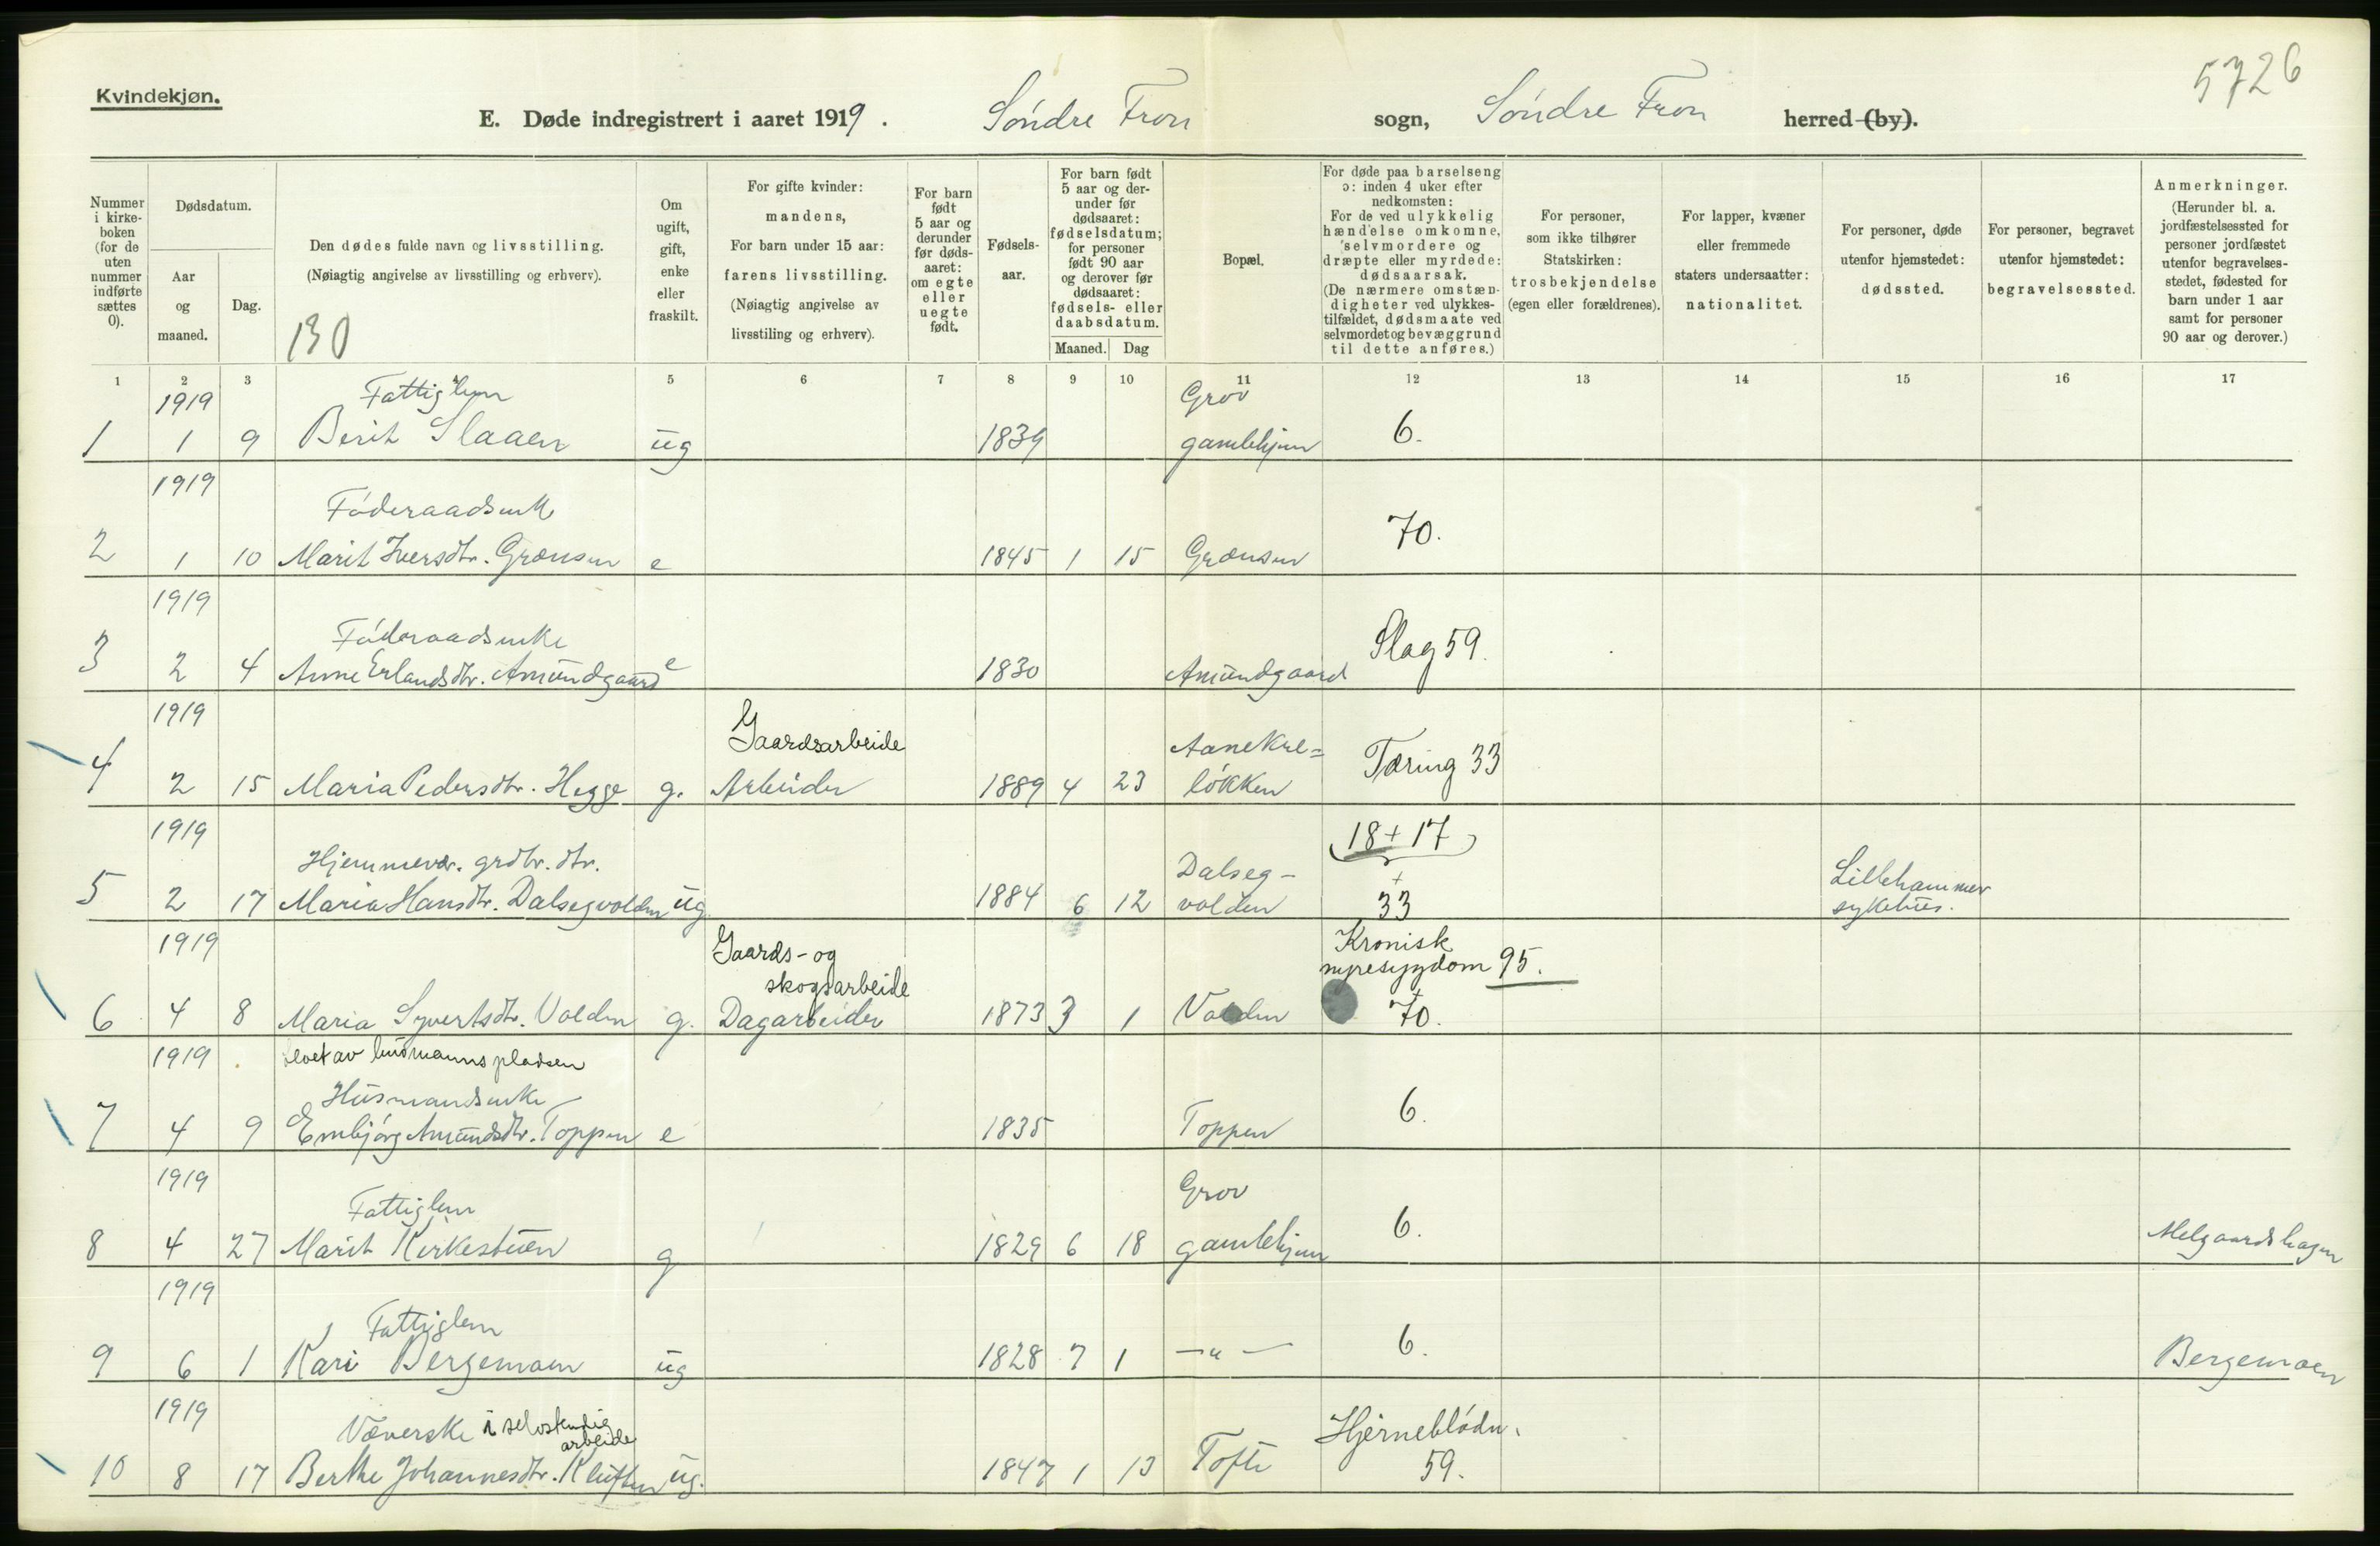 5726
Kvindekjøn.
E. Døde indregistrert i aaret 1919. Söndre Fron sogn, Söndre Fron herred (by).
Nummer i kirke- boken (for de uten nummer indførte sættes 0).
Dødsdatum.
Aar og maaned.
Dag.
Den dødes fulde navn og livsstilling.
(Nøiagtig angivelse av livsstilling og erhverv).
130
Om ugift, gift, enke eller fraskilt.
For gifte kvinder:
mandens,
For barn under 15 aar:
farens livsstilling.
(Nøiagtig angivelse av
livsstiling og erhverv).
For barn født 5 aar og derunder før døds- aaret: om egte eller uegte født.
Fødsels- aar.
For barn født 5 aar og der- under før dødsaaret: fødselsdatum; for personer født 90 aar og derover før dødsaaret: fødsels- eller daabsdatum.
Maaned. Dag
Bopæl.
For døde paa barselseng
ɔ: inden 4 uker efter
nedkomsten:
For de ved ulykkelig
hændelse omkomne,
selvmordere og
dræpte eller myrdede:
dødsaarsak.
(De nærmere omstæn-
digheter ved ulykkes-
tilfældet, dødsmaate ved
selvmordet og bevæggrund
til dette anføres.)
For personer,
som ikke tilhører
Statskirken:
trosbekjendelse
(egen eller forældrenes).
For lapper, kvæner
eller fremmede
staters undersaatter:
nationalitet.
For personer, døde
utenfor hjemstedet:
dødssted.
For personer, begravet
utenfor hjemstedet:
begravelsessted.
Anmerkninger.
(Herunder bl. a.
jordfæstelsessted for
personer jordfæstet
utenfor begravelses-
stedet, fødested for
barn under 1 aar
samt for personer
90 aar og derover.)
1 2 3 5 6 7 8 9 10 11 12 13 14 15 16 17
1919 Fattiglem Grov
1 1 9 Berit Slaaen ug 1839 gamlehjem 6.
1919 Föderaadsenke
2 1 10 Marit Iversdtr. Grænsen e 1845 1 15 Grænsen 70.
1919 Föderaadsenke
3 2 4 Anne Erlandsdtr. Amundgaard e 1830 Amundgaard Slag 59.
1919 Gaardsarbeide Aanekre=
4 2 15 Maria Pedersdtr. Hegge g. Arbeider 1889 4 23 lökken Tæring 33
1919 Hjemmevær. grdbr. dtr. Dalseg- 18 + 17 Lillehammer
5 2 17 Maria Hansdtr. Dalsegvolden ug 1884 6 12 volden + 33 sykehus.
1919 Gaards- og skogsarbeide Kronisk nyresygdom 95.
6 4 8 Maria Syvertsdtr. Volden g. Dagarbeider 1873 3 1 Volden + 70.
1919 levet av husmannspladsen
Husmandsenke
7 4 9 Embjörg Amundsdtr. Toppen e 1835 Toppen 6.
1919 Fattiglem Grov
8 4 27 Marit Kirkestuen g 1829 6 18 gamlehjem 6. Melgaardshagen
1919 Fattiglem
9 6 1 Kari Bergemoen ug 1828 7 1 —"— 6. Bergemoen
1919 Væverske i selvstendig arbeide Hjerneblödn.
10 8 17 Berthe Johannesdtr. Kluften ug. 1847 1 13 Tofte 59.